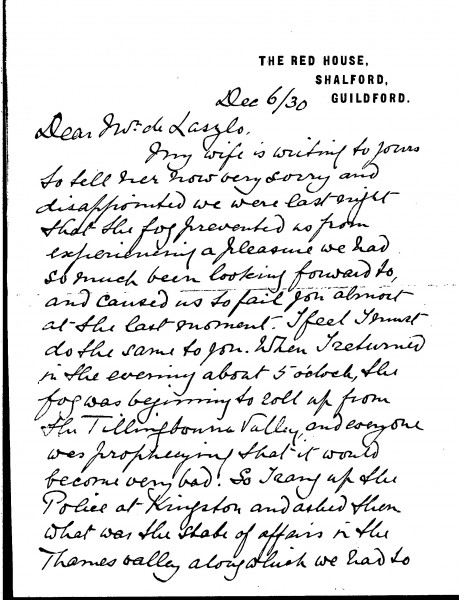 THE RED HOUSE,
SHALFORD,
GUILDFORD.
Dec 6/30
Dear Mr. de Laszlo,
My wife is writing to yours
to tell her how very sorry and
disappointed we were last night
that the fog prevented us from
experiencing a pleasure we had
so much been looking forward to,
and caused us to fail you almost
at the last moment. I feel I must
do the same to you. When I returned
in the evening about 5 o'clock, the
fog was beginning to roll up from
the Tillingbourne Valley, and everyone
was prophecying that it would
become very bad. So I rang up the
Police at Kingston and asked them
what was the state of affairs in the
Thames valley along which we had to